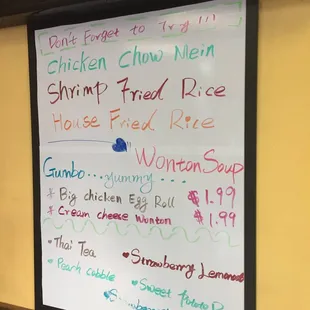 Don't Forget to Try!!!
Chicken Chow Mein
Shrimp Fried Rice
House Fried Rice
Wonton Soup
Gumbo...yummy...
Big chicken Egg Roll $1.99
Cream cheese Wonton $1.99
Thai Tea
Strawberry Lemonade
Peach cobble
Sweet Potato